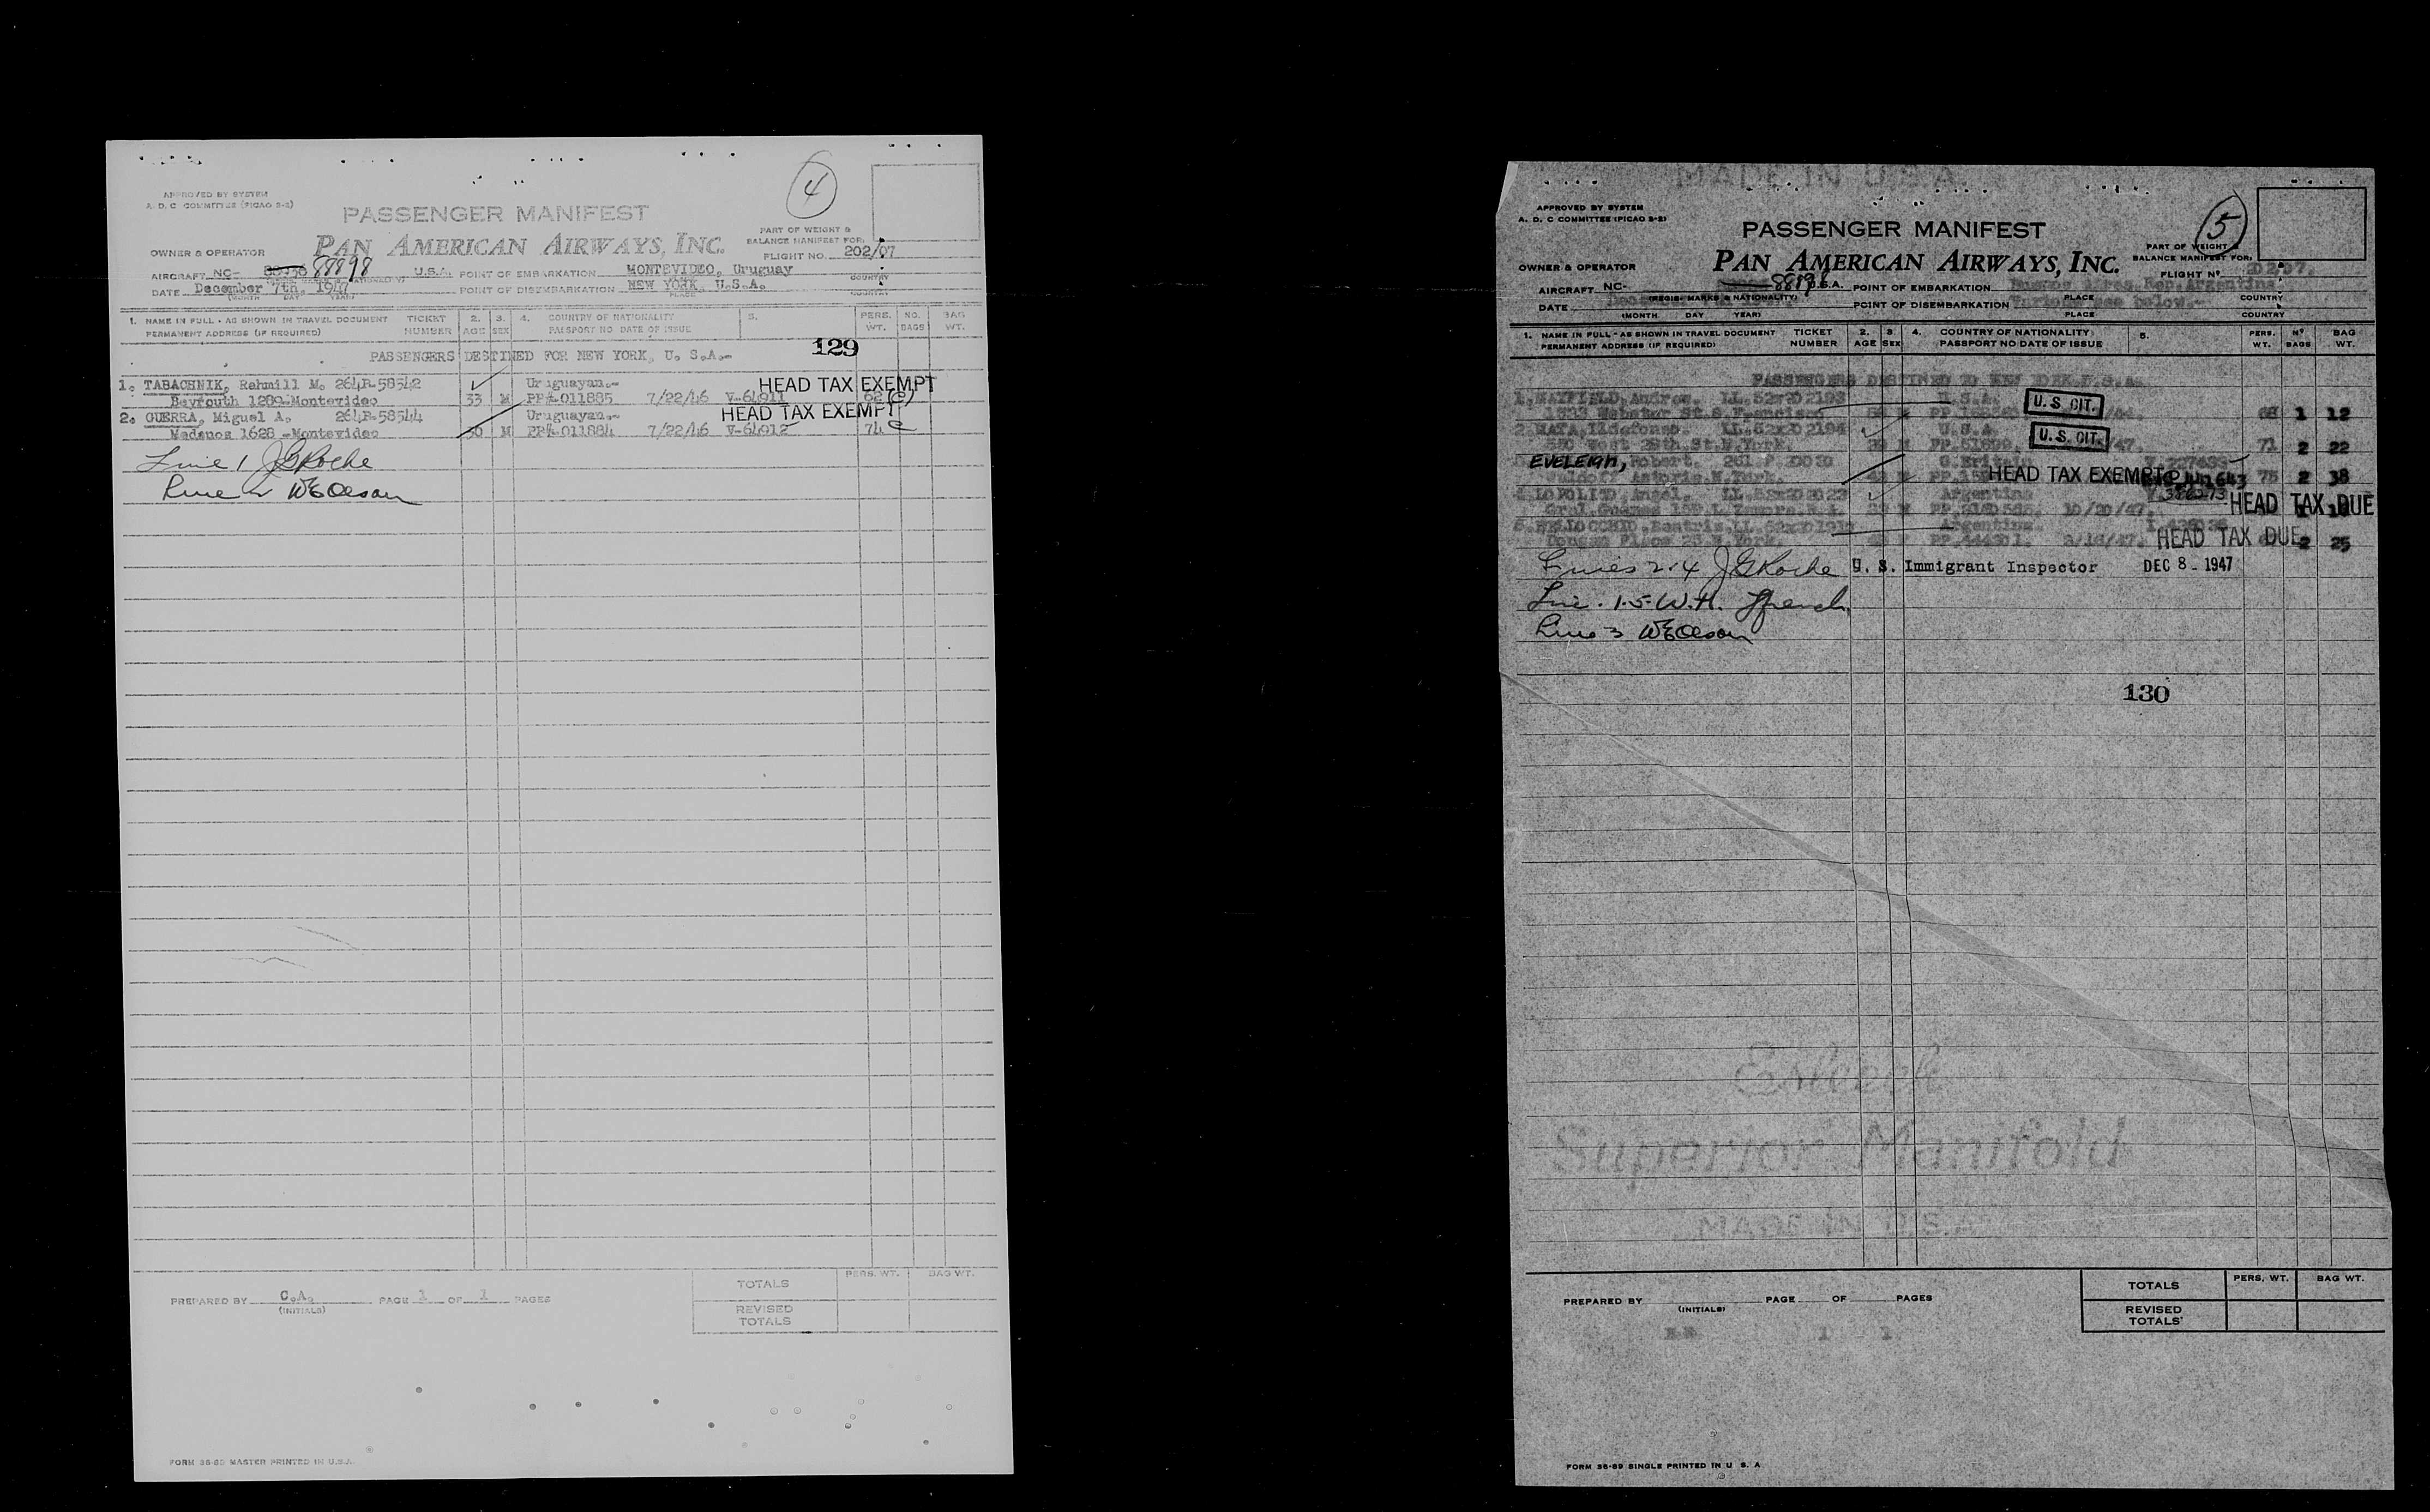 4
APPROVED BY SYSTEM
A. D. C COMMITTEE (PICAO S-2)
PASSENGER MANIFEST
PART OF WEIGHT &
BALANCE MANIFEST FOR:
OWNER & OPERATOR PAN AMERICAN AIRWAYS, INC.
FLIGHT NO. 202/07
AIRCRAFT NC- 88898 U.S.A. POINT OF EMBARKATION MONTEVIDEO, Uruguay
COUNTRY
DATE December 7th, 1947 POINT OF DISEMBARKATION NEW YORK, U.S.A.
(MONTH DAY YEAR) PLACE COUNTRY
1. NAME IN FULL - AS SHOWN IN TRAVEL DOCUMENT TICKET 2. 3. 4. COUNTRY OF NATIONALITY 5. PERS. NO. BAG
PERMANENT ADDRESS (IF REQUIRED) NUMBER AGE SEX PASSPORT NO DATE OF ISSUE WT. BAGS WT.
129
PASSENGERS DESTINED FOR NEW YORK, U. S.A.-
1. TABACHNIK, Rahmill M. 264R-58542 Uruguayan.- HEAD TAX EXEMPT
Beyrouth 1289-Montevideo 33 M PP#-011885 7/22/46 V-64911 62
2. GUERRA, Miguel A. 264R-58544 Uruguayan.- HEAD TAX EXEMPT
Madanos 1628 -Montevideo 30 M PP#-011884 7/22/46 V-64912 74
Line 1 JGRoche
Line 2 WEOlson
TOTALS PERS. WT. BAG WT.
PREPARED BY C.A. PAGE 1 OF 1 PAGES
(INITIALS)
REVISED
TOTALS
FORM 36-89 MASTER PRINTED IN U.S.A.
MADE IN U.S.A
5
APPROVED BY SYSTEM
A. D. C COMMITTEE (PICAO S-2)
PASSENGER MANIFEST
PART OF WEIGHT &
BALANCE MANIFEST FOR:
OWNER & OPERATOR PAN AMERICAN AIRWAYS, INC.
FLIGHT Nº 202/07.
AIRCRAFT NC- 88898 U.S.A. POINT OF EMBARKATION Buenos Aires, Rep. Argentina
(REGIS. MARKS & NATIONALITY) PLACE COUNTRY
DATE POINT OF DISEMBARKATION below.-
(MONTH DAY YEAR) PLACE COUNTRY
1. NAME IN FULL - AS SHOWN IN TRAVEL DOCUMENT TICKET 2. 3 4. COUNTRY OF NATIONALITY 5. PERS. Nº BAG
PERMANENT ADDRESS (IF REQUIRED) NUMBER AGE SEX PASSPORT NO DATE OF ISSUE WT. BAGS WT.
PASSENGERS DESTINED TO NEW YORK, U.S.A.
1. MAYFIELD, Andrew. U.S.A. U. S. CIT.
Webster St. S. Francisco 68 1 12
2. MATA, Ildefonso. U.S.A. U. S. CIT.
West 29th. St. N. York. 71 2 22
EVELEIGH, Robert.
Waldorf Astoria, N. York. HEAD TAX EXEMPT 75 2 38
4. LOPOLITO, Angel. Argentina HEAD TAX DUE
10/20/47.
5. BELLOCCHIO, Beatris. Argentina.
N. York. HEAD TAX DUE 2 25
Lines 2-4 JGRoche U. S. Immigrant Inspector DEC 8 - 1947
Line . 1-5- W.H. French
Line 3 WEOlson
130
Superior Manifold
MADE IN U.S.A
TOTALS PERS. WT. BAG WT.
PREPARED BY PAGE OF PAGES
(INITIALS)
REVISED
TOTALS
1 1
FORM 36-89 SINGLE PRINTED IN U S. A